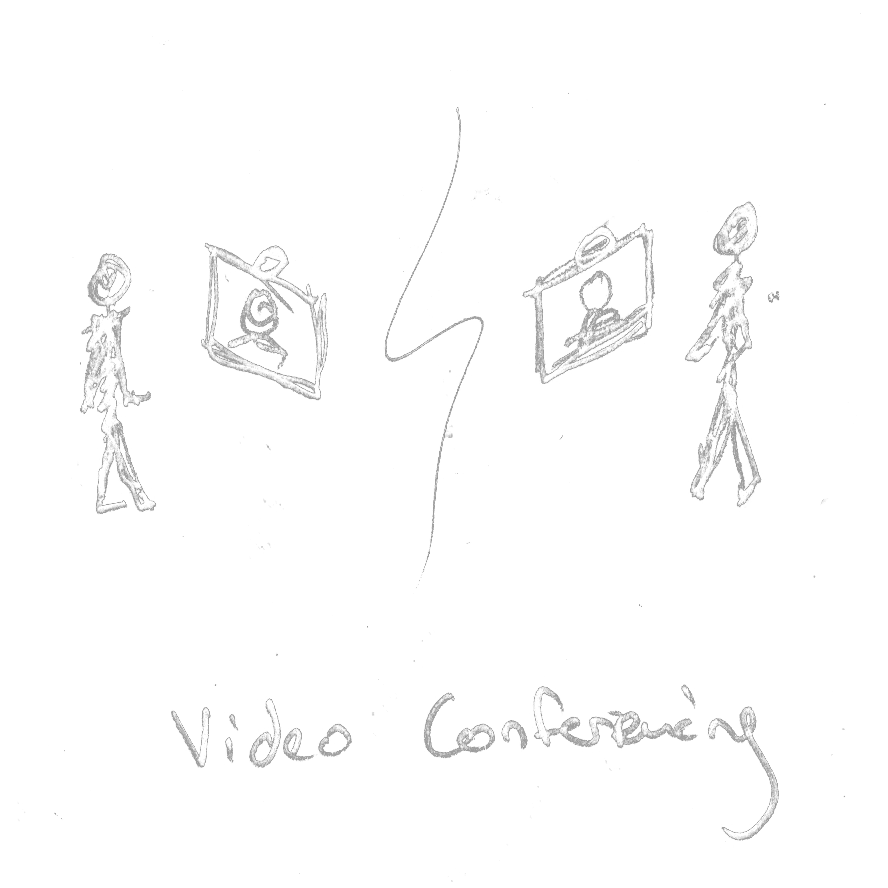 Video Conferencing